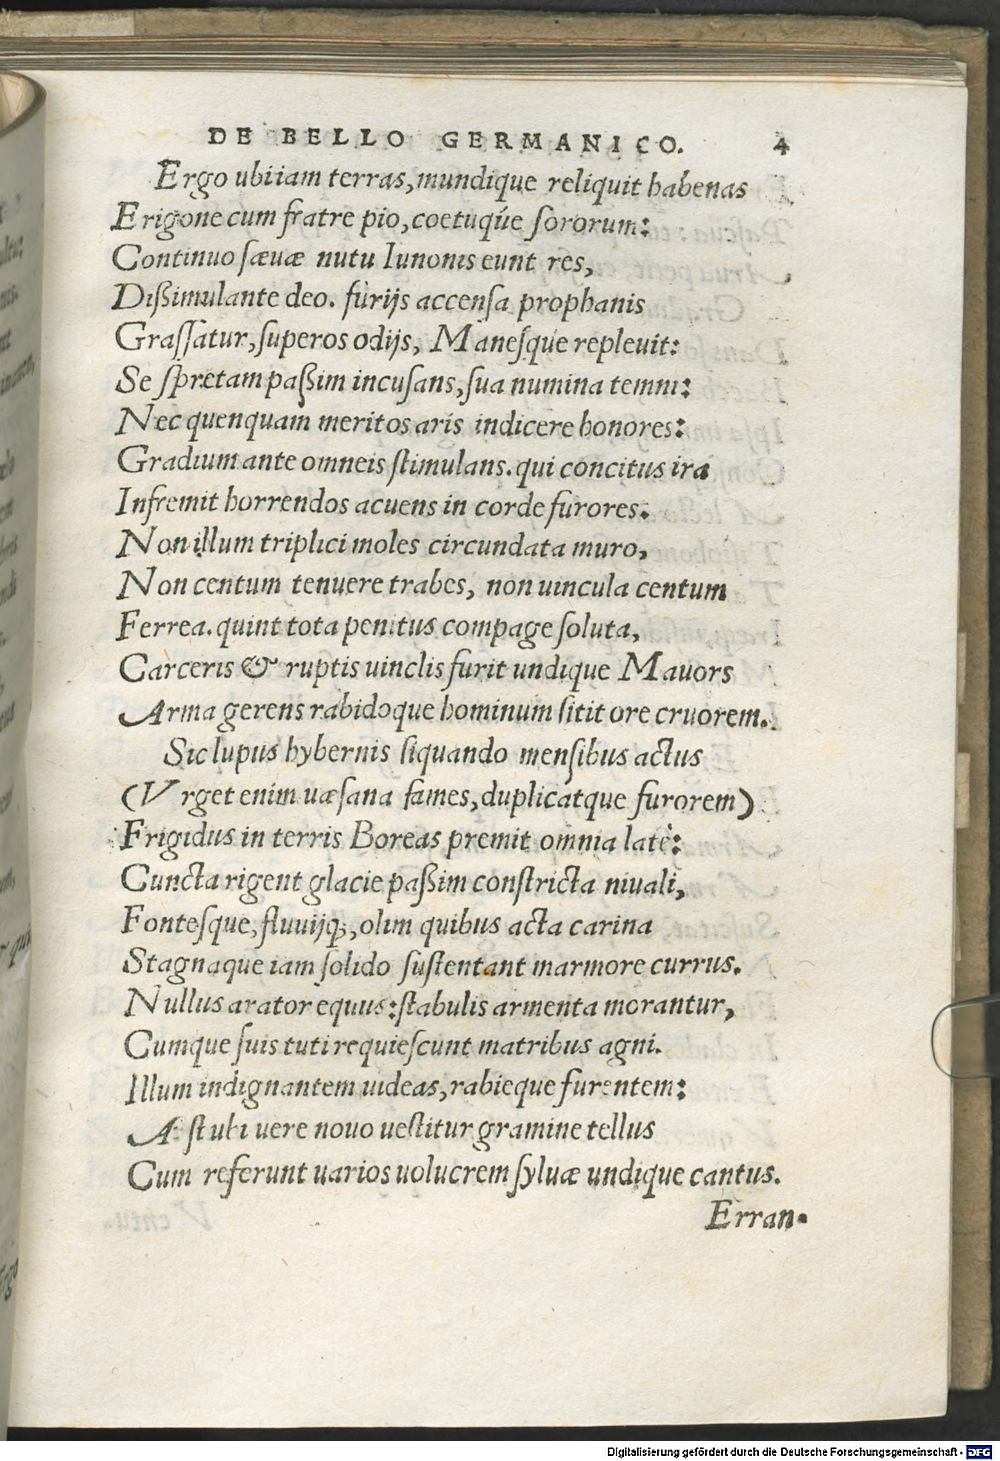 DE BELLO GERMANICO. 4
Ergo ubi iam terras, mundique reliquit habenas
Erigone cum fratre pio, coetuq́ue ſororum:
Continuo ſæuæ nutu Iunonis eunt res,
Dißimulante deo. furijs accenſa prophanis
Graſſatur, ſuperos odijs, Maneſque repleuit:
Se ſpretam paßim incuſans, ſua numina temni:
Nec quenquam meritos aris indicere honores:
Gradium ante omneis ſtimulans. qui concitus ira
Infremit horrendos acuens in corde furores.
Non illum triplici moles circundata muro,
Non centum tenuere trabes, non uincula centum
Ferrea. quin tota penitus compage ſoluta,
Carceris & ruptis uinclis furit undique Mauors
Arma gerens rabidoque hominum ſitit ore cruorem.
Sic lupus hybernis ſiquando menſibus actus
(Vrget enim uæſana fames, duplicatque furorem)
Frigidus in terris Boreas premit omnia latè:
Cuncta rigent glacie paßim conſtricta niuali,
Fonteſque, fluuijq;, olim quibus acta carina
Stagnaque iam ſolido ſuſtentant marmore currus.
Nullus arator equus: ſtabulis armenta morantur,
Cumque ſuis tuti requieſcunt matribus agni.
Illum indignantem uideas, rabieque furentem:
Aſt ubi uere nouo ueſtitur gramine tellus
Cum referunt uarios uolucrem ſyluæ undique cantus.
Erran-
Digitalisierung gefördert durch die Deutsche Forschungsgemeinschaft - DFG